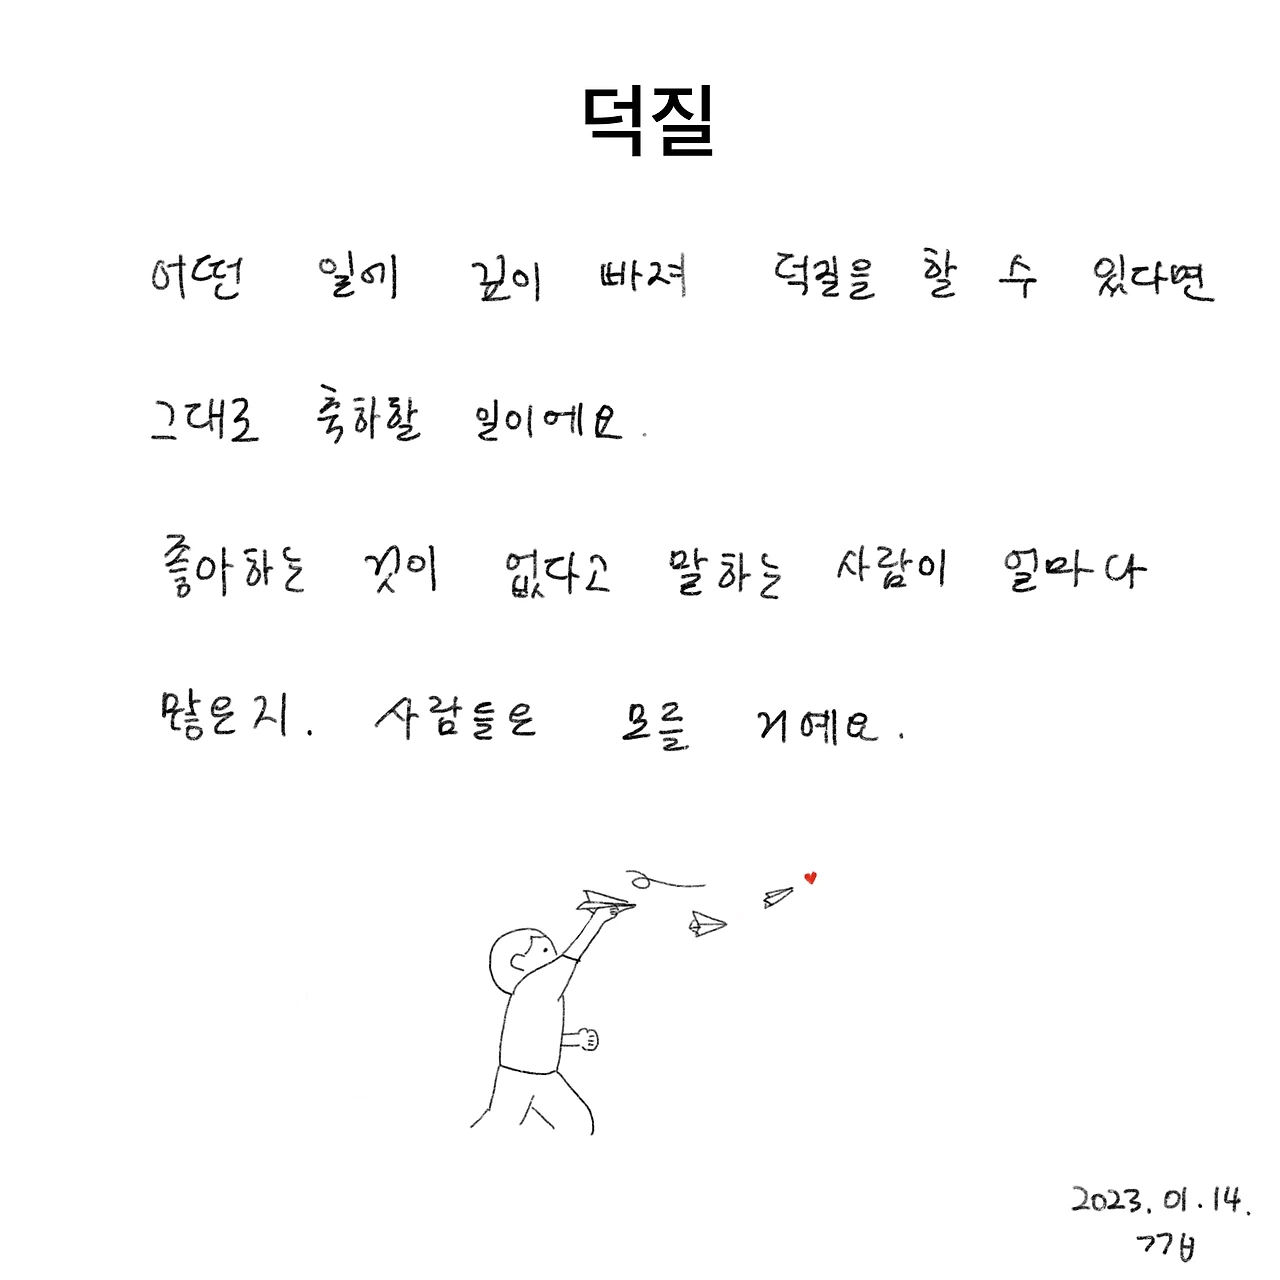 덕질
어떤 일에 깊이 빠져 덕질을 할 수 있다면
그대로 축하할 일이에요.
좋아하는 것이 없다고 말하는 사람이 얼마나
많은지. 사람들은 모를 거예요.
2023. 01. 14.
ㄱㄱㅂ